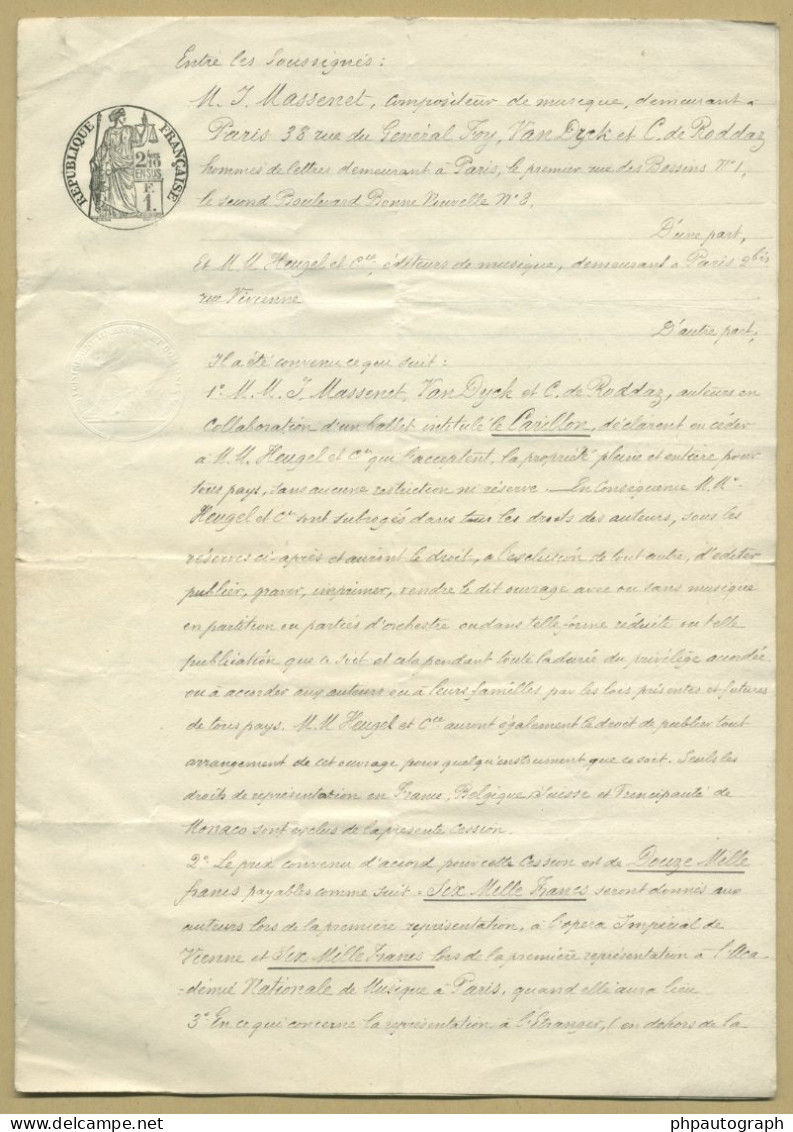 Entre les Soussignés :
M. J. Massenet, compositeur de musique, demeurant à
Paris 38 rue du Général Foy, Van Dyck et C. de Roddaz
hommes de lettres demeurant à Paris, le premier rue des Bassins N° 1,
le second Boulevard Bonne Nouvelle N° 8.
D'une part,
Et M.M. Heugel et Cie, éditeurs de musique, demeurant à Paris 2bis
rue Vivienne
D'autre part,
RÉPUBLIQUE FRANÇAISE
2/10
EN SUS
F.
1.
Il a été convenu ce qui suit :
1° M.M. J. Massenet, Van Dyck et C. de Roddaz, auteurs en
collaboration d'un ballet intitulé le Carillon, déclarent en céder
à M.M. Heugel et Cie qui l'acceptent, la propriété pleine et entière pour
tous pays, sans aucune restriction ni réserve. — En conséquence M.M.
Heugel et Cie sont subrogés dans tous les droits des auteurs, sous les
réserves ci-après et auront le droit, à l'exclusion de tout autre, d'éditer
publier, graver, imprimer, vendre le dit ouvrage avec ou sans musique
en partition ou parties d'orchestre ou dans telle forme réduite ou telle
publication que ce soit et cela pendant toute la durée du privilège accordé
ou à accorder aux auteurs ou à leurs familles par les lois présentes et futures
de tous pays. M.M Heugel et Cie auront également le droit de publier tout
arrangement de cet ouvrage pour quelqu'instrument que ce soit. Seuls les
droits de représentation en France, Belgique, Suisse et Principauté de
Monaco sont exclus de la présente cession.
2° Le prix convenu d'accord pour cette cession est de Douze Mille
francs payables comme suit = Six Mille Francs seront donnés aux
auteurs lors de la première représentation, à l'opéra Impérial de
Vienne et Six Mille Francs lors de la première représentation à l'Aca-
-démie Nationale de Musique à Paris, quand elle aura lieu.
3° En ce qui concerne la représentation à l'Etranger, (en dehors de la
phpautograph